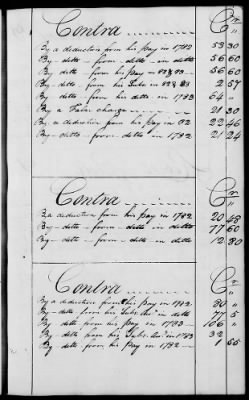 Contra Cr
By a deduction from his Pay in 1782 53 30
By - ditto - from - ditto - in ditto 56 60
By - ditto - from - his Pay in 82 & 83 56 60
By - ditto - from - his Subs in 82 & 83 2 57
By ditto - from - ditto in 1783 64 "
By a False charge 21 30
By a deduction from his Pay in 82 22 46
By - ditto - from - ditto in 1782 21 24
Contra Cr
By a deduction from his Pay in 1782 20 48
By - ditto - from - ditto in ditto 77 60
By - ditto - from - ditto in ditto 12 80
Contra Cr
By a deduction from his Pay in 1782 80 "
By ditto from his Subs. in ditto 77 5
By ditto from his Pay in 1783 106 "
By ditto from his Subs. in 1783 32
By ditto from his Pay in 1782 1 65